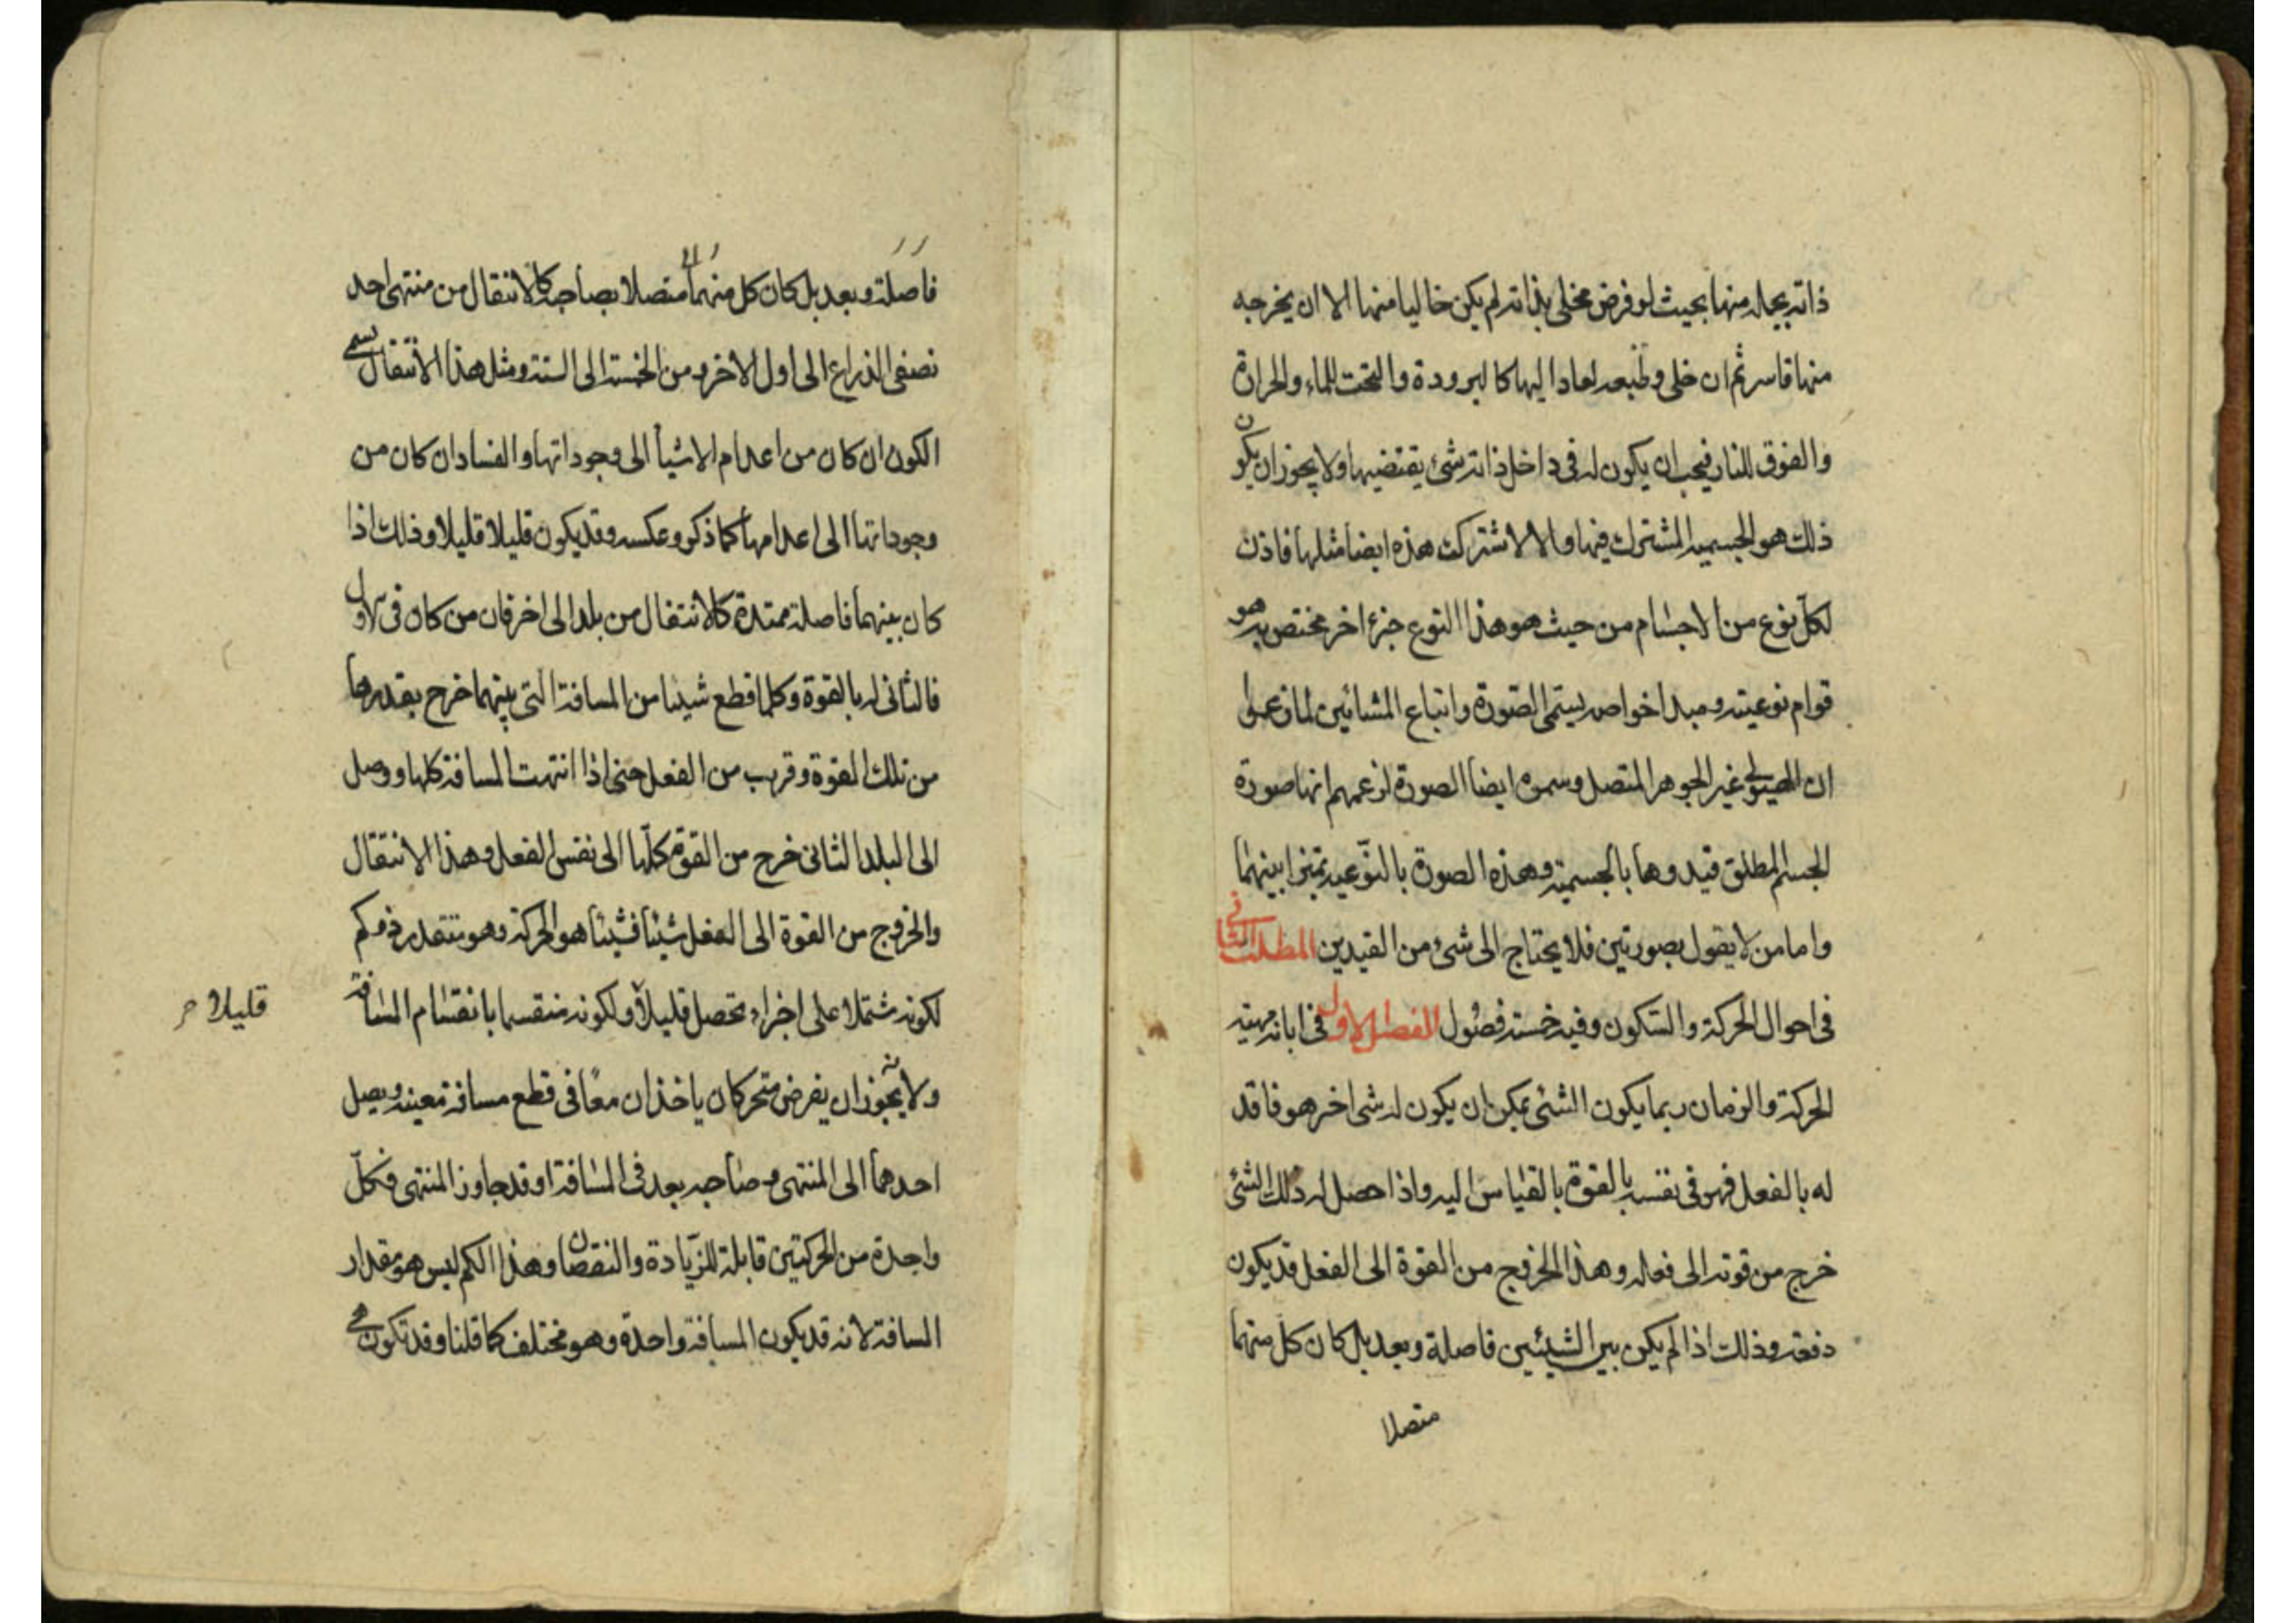 ذاته بحاله منها بحيث لو فرض مخلى بذاته لم يكن خاليا منها الا ان يخرجه
منها قاسر ثم ان خلى وطبعه لعادا اليها كالبرودة والتحت للماء والحرارة
والفوق للنار فيجب ان يكون له فى داخل ذاته شئ يقتضيها ولا يجوز ان يكون
ذلك هو الجسميه المشترك فيها والا لاشتركت هذه ايضا مثلها فاذن
لكل نوع من الاجسام من حيث هو هذا النوع جزء اخر مختص به هو
قوام نوعيته ومبدا خواصه يسمى الصورة واتباع المشائين لما زعموا
ان الهيولى غير الجوهر المتصل وسموه ايضا الصورة لزعمهم انها صورة
الجسم المطلق قيدوها بالجسمية وهذه الصورة بالنوعيه تميزا بينهما
واما من لا يقول بصورتين فلا يحتاج الى شئ من القيدين المطلب الثانى
فى احوال الحركة والسكون وفيه خمسة فصول الفصل الاول فى ابانة مهية
الحركة والزمان ربما يكون الشئ يمكن ان يكون له شى اخر هو فاقد
له بالفعل فهو فى نفسه بالقوة بالقياس اليه واذا حصل له ذلك الشئ
خرج من قوته الى فعله وهذا الخروج من القوة الى الفعل قد يكون
دفعة وذلك اذا لم يكن بين الشيئين فاصلة وبعد بل كان كل منهما
متصلا
فاصلة وبعد بل كان كل منهما متصلا بصاحبه كالانتقال من منتهى احد
نصفى الذراع الى اول الاخر ومن الخمسة الى الستة ومثل هذا الانتقال يسمى
الكون ان كان من اعدام الاشيأ الى وجوداتها والفساد ان كان من
وجوداتها الى اعدامها كما ذكر وعكسه وقد يكون قليلا قليلا وذلك اذا
كان بينهما فاصلة ممتدة كالانتقال من بلد الى اخر فان من كان فى الاول
فالثانى له بالقوة وكلما قطع شيئا من المسافة التى بينهما خرج بقدرها
من تلك القوة وقرب من الفعل حتى اذا انتهت المسافة كلها ووصل
الى البلد الثانى خرج من القوة كلها الى نفس الفعل وهذا الانتقال
والخروج من القوة الى الفعل شيئا فشيئا هو الحركة وهو متقدر ذو كم
لكونه مشتملا على اجزاء تحصل قليلا ولكونه منقسما بانقسام المسافة
قليلا
ولانه يجوز ان يفرض متحركان ياخذان معًا فى قطع مسافة معينه ويصل
احدهما الى المنتهى وصاحبه بعد فى المسافة او قد جاوز المنتهى فكل
واحدة من الحركتين قابلة للزيادة والنقصان وهذا الكم ليس هو مقدار
المسافة لانه قد يكون المسافة واحدة وهو مختلف كما قلنا وقد تكون هى